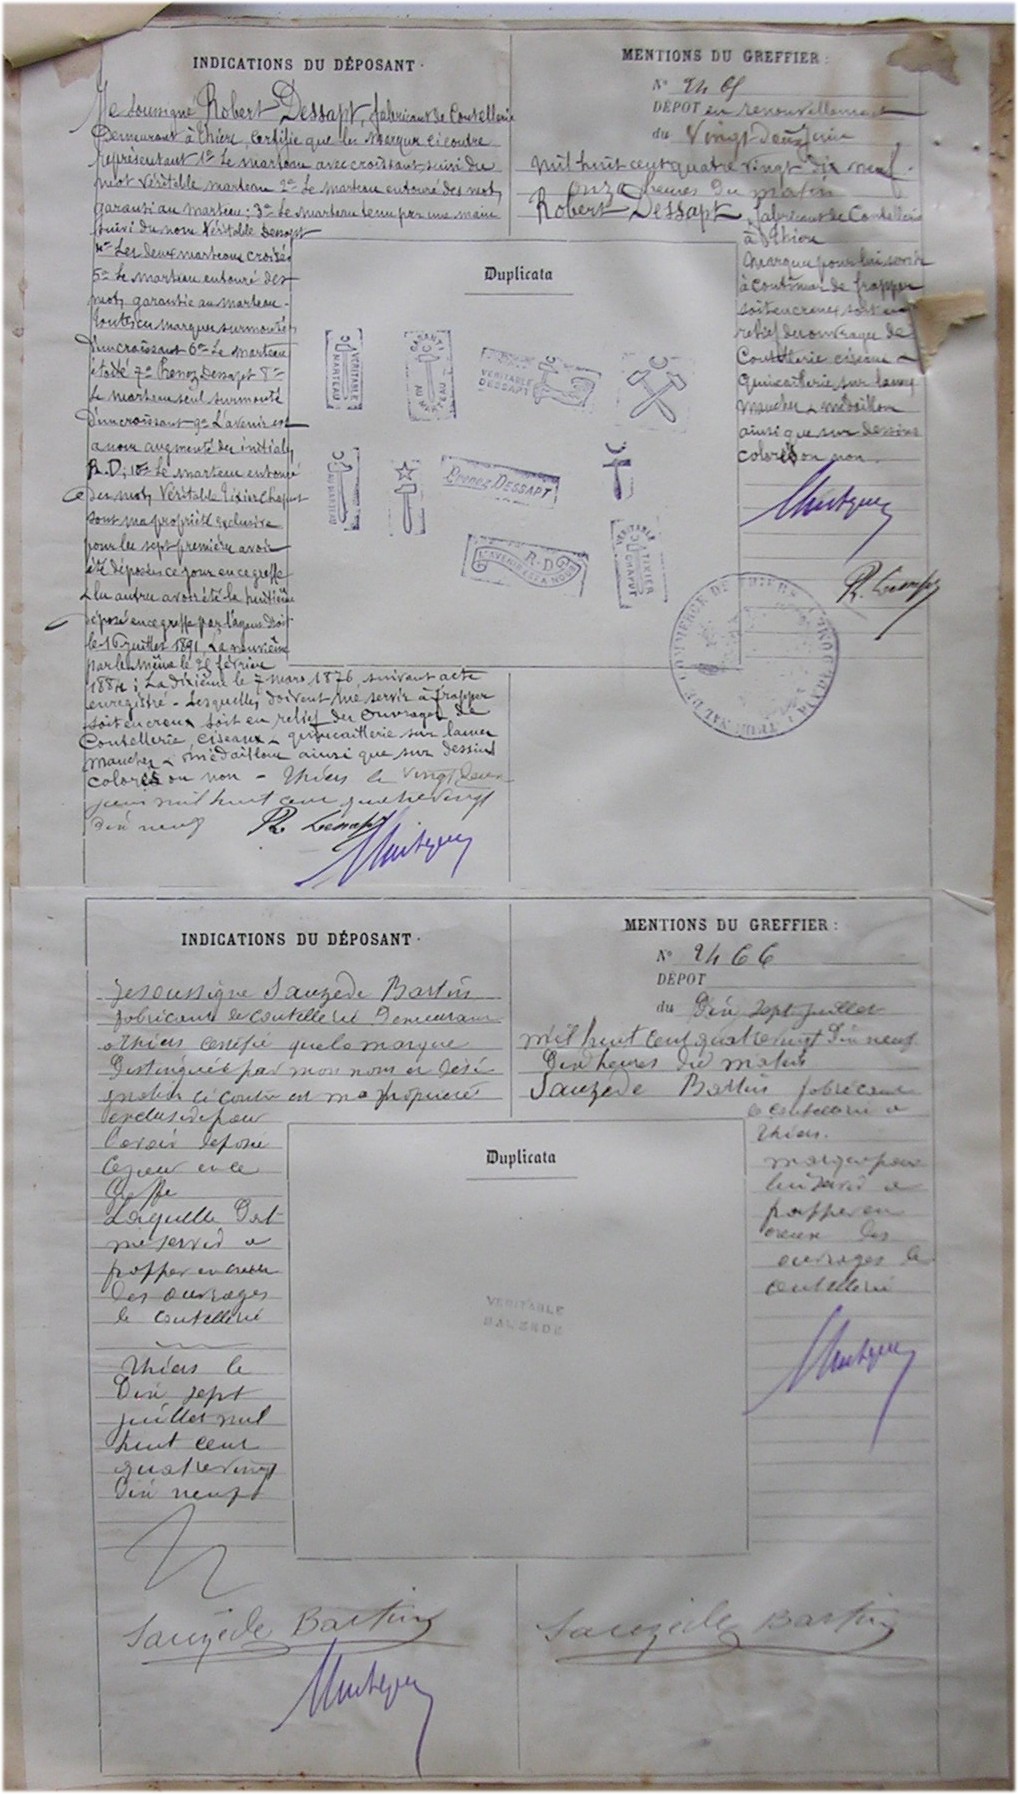 INDICATIONS DU DÉPOSANT.
Je Soussigné Robert Dessapt, fabricant de Coutellerie
Demeurant à Thiers, certifie que les Marques ci contre
représentant 1º Le marteau avec croissant, suivi du
mot Véritable marteau 2º Le marteau entouré des mots
garanti au marteau; 3º Le marteau tenu par une main
suivi du nom Véritable Dessapt
4º Les deux marteaux croisés
5º Le marteau entouré des
mots garantie au marteau.
toutes ces marques surmontées
d'un croissant 6º Le marteau
étoilé 7º Prenez Dessapt 8º
Le marteau seul surmonté
d'un croissant 9º L'avenir est
a nous augmenté des initiales
R.D; 10º Le marteau entouré
des mots Véritable Tixier Chaput
sont ma propriété exclusive
pour les sept premières avoir
été déposées ce jour en ce greffe
& les autres avoir été la huitième
déposé en ce greffe par
le 16 juillet 1891, La neuvième
par le même le 26 février
1884; La dixième le 7 mars 1876, suivant acte
enregistré - Lesquelles doivent me servir à frapper
soit en creux soit en relief des ouvrages de
Coutellerie Ciseaux & quincaillerie sur lames
manches & médaillons ainsi que sur dessins
colorés ou non - Thiers le vingt deux
juin mil huit cent quatre vingt
dix neuf
MENTIONS DU GREFFIER:
Nº 24 65
DÉPOT en renouvellement
du Vingt deux Juin
mil huit cent quatre vingt dix neuf.
onze heures du matin
Robert Dessapt, fabricant de Coutellerie
à Thiers
Marques pour lui servir
à continuer de frapper
soit en creux soit en
relief des ouvrages de
Coutellerie ciseaux &
quincaillerie sur lames
manches & médaillons
ainsi que sur dessins
colorés ou non.
Duplicata
VERITABLE
MARTEAU
GARANTI
AU MARTEAU
VERITABLE
DESSAPT
AU MARTEAU
Prenez DESSAPT
R-D
L'AVENIR EST A NOUS
VERITABLE TIXIER
CHAPUT
TRIBUNAL DE COMMERCE DE THIERS
INDICATIONS DU DÉPOSANT.
Je soussigné Sauzède Bartin
fabricant de coutellerie Demeurant
a thiers certifie que la marque
Distinguée par mon nom et
ci contre est ma propriété
exclusive pour
l'avoir déposé
ce jour en ce
Greffe
Laquelle Doit
me servir a
frapper en creux
des ouvrages
de coutellerie
Thiers le
Dix sept
juillet mil
huit cent
quatre vingt
Dix neuf
Sauzède Bartin
MENTIONS DU GREFFIER:
Nº 24 66
DÉPOT
du Dix sept juillet
mil huit cent quatre vingt Dix neuf
Dix heures du matin
Sauzède Bartin fabricant
de coutellerie a
Thiers.
marque pour
lui servir a
frapper en
creux des
ouvrages de
coutellerie
Duplicata
VERITABLE
SAUZEDE
Sauzède Bartin